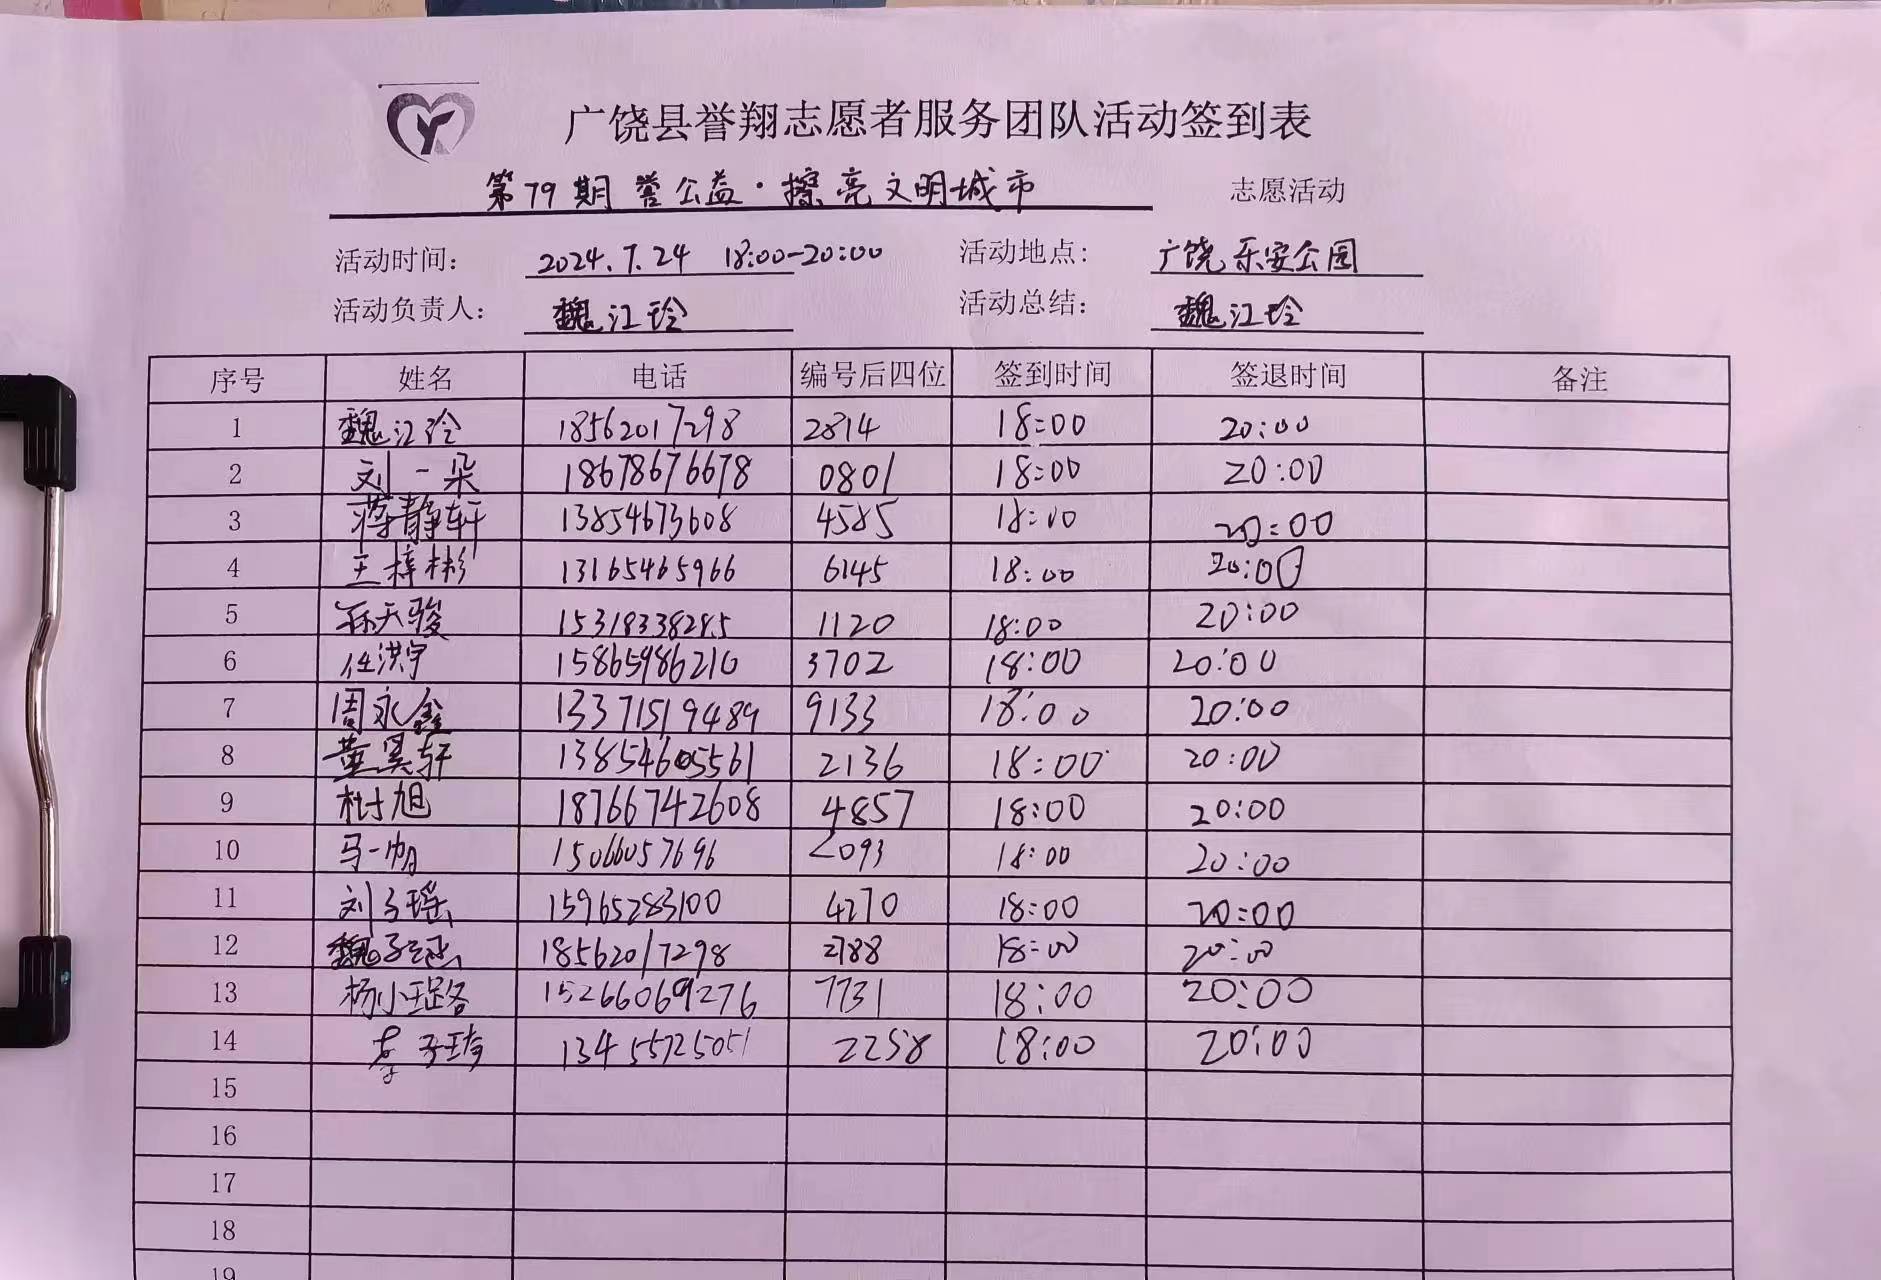 广饶县誉翔志愿者服务团队活动签到表
第79期 誉公益·擦亮文明城市 志愿活动
活动时间: 2024.7.24 18:00-20:00 活动地点: 广饶乐安公园
活动负责人: 魏江玲 活动总结: 魏江玲
序号 姓名 电话 编号后四位 签到时间 签退时间 备注
1 魏江玲 18562017298 2814 18:00 20:00
2 刘一朵 18678676678 0801 18:00 20:00
3 蒋静轩 13854673608 4585 18:00 20:00
4 王梓彬 13165465966 6145 18:00 20:00
5 孙天骏 15318338285 1120 18:00 20:00
6 任洪宇 15865986210 3702 18:00 20:00
7 周永鑫 13371519489 9133 18:00 20:00
8 董昊轩 13854605561 2136 18:00 20:00
9 杜旭 18766742608 4857 18:00 20:00
10 马一帆 15066057696 2093 18:00 20:00
11 刘子瑶 15965283100 4270 18:00 20:00
12 魏子 18562017298 2788 18:00 20:00
13 杨小璐 15266069276 7731 18:00 20:00
14 李子琦 13455725051 2258 18:00 20:00
15
16
17
18
19